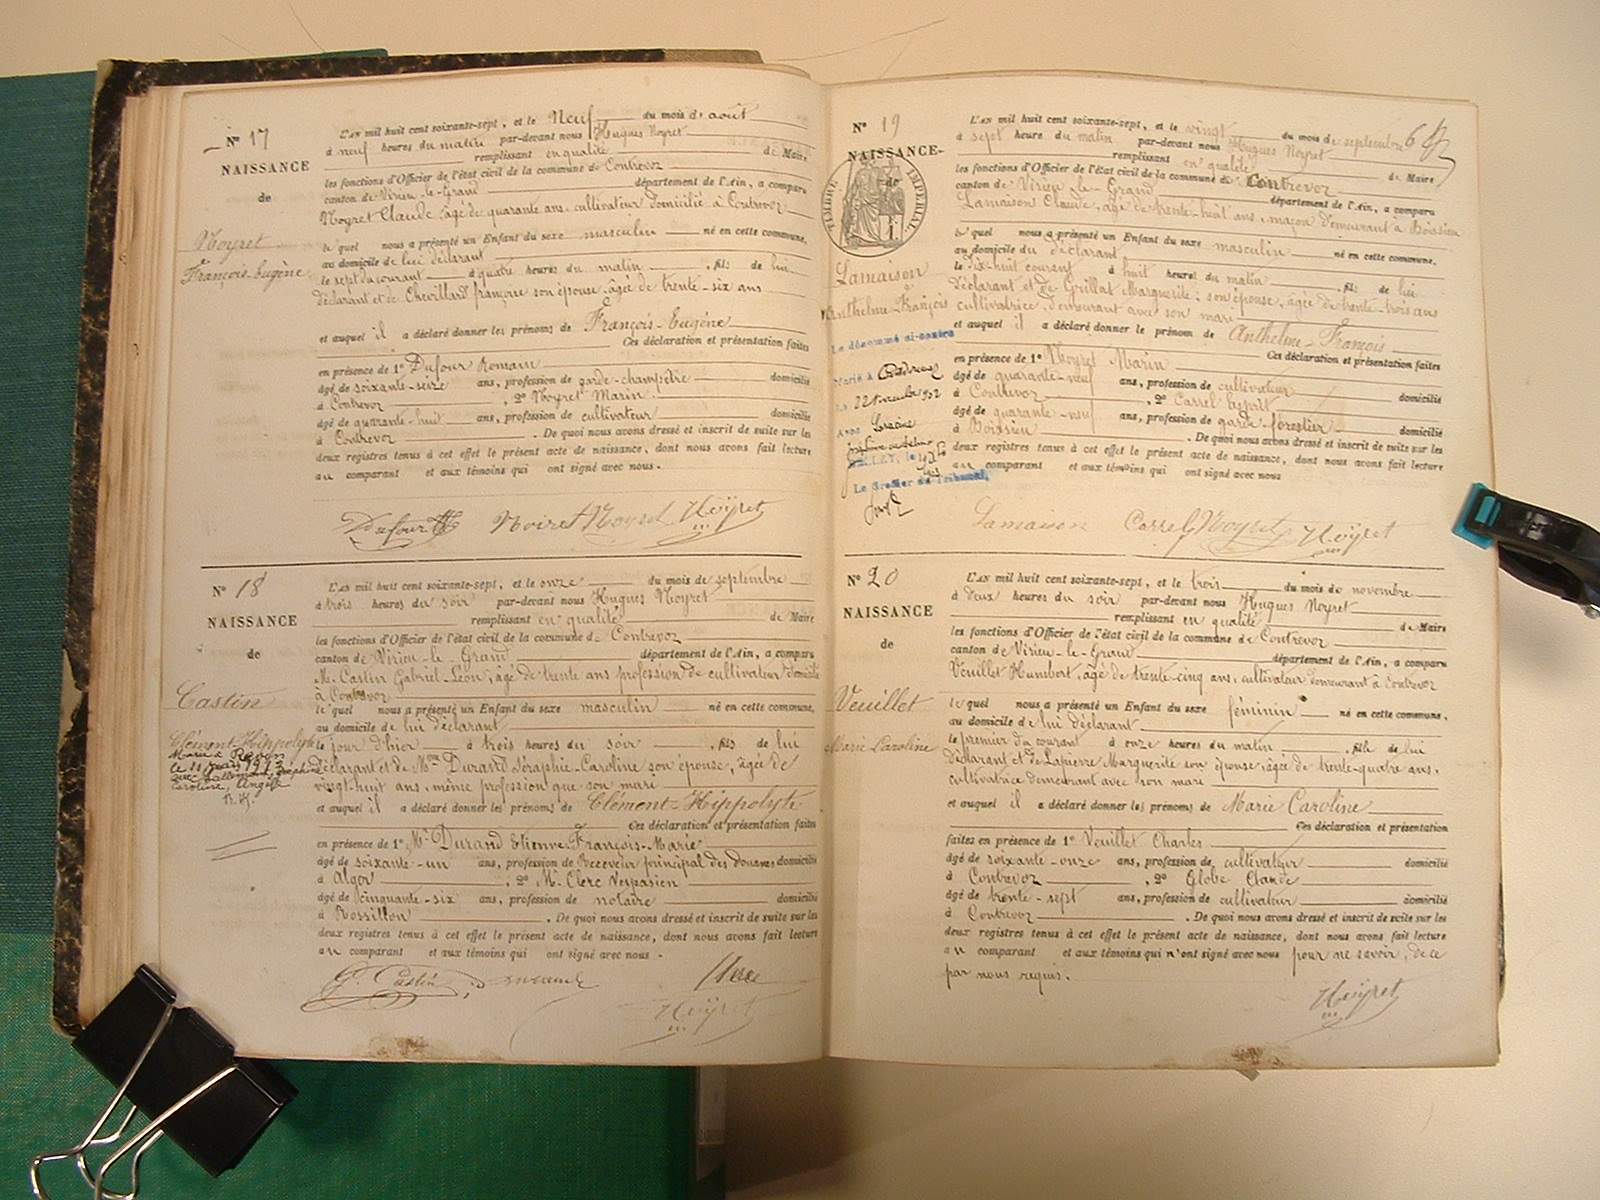 N° 17
NAISSANCE
de
Noyret
François-Eugène
L'AN mil huit cent soixante-sept, et le Neuf du mois d'août
à neuf heures du matin par-devant nous Hugues Noyret
remplissant en qualité de Maire
les fonctions d'Officier de l'état civil de la commune de Contrevoz
canton de Virieu-le-Grand département de l'Ain, a comparu
Noyret Claude, âgé de quarante ans, cultivateur domicilié à Contrevoz
le quel nous a présenté un Enfant du sexe masculin né en cette commune,
au domicile de lui déclarant
le sept du courant à quatre heures du matin, fils de lui
déclarant et de Chevillard françoise son épouse, âgée de trente-six ans
et auquel il a déclaré donner les prénoms de François-Eugène
Ces déclaration et présentation faites
en présence de 1° Dufour Romain
âgé de soixante-seize ans, profession de garde-champêtre domicilié
à Contrevoz, 2° Noyret Marin
âgé de quarante-huit ans, profession de cultivateur domicilié
à Contrevoz. De quoi nous avons dressé et inscrit de suite sur les
deux registres tenus à cet effet le présent acte de naissance, dont nous avons fait lecture
au comparant et aux témoins qui ont signé avec nous.
Dufour Noiret Noyret Nöyret
N° 18
NAISSANCE
de
Castin
Clément-Hippolyte
Caroline, Angèle
L'AN mil huit cent soixante-sept, et le onze du mois de septembre
à trois heures du soir par-devant nous Hugues Noyret
remplissant en qualité de Maire
les fonctions d'Officier de l'état civil de la commune de Contrevoz
canton de Virieu-le-Grand département de l'Ain, a comparu
M. Castin Gabriel-Léon, âgé de trente ans profession de cultivateur domicilié
à Contrevoz
le quel nous a présenté un Enfant du sexe masculin né en cette commune,
au domicile de lui déclarant
le jour d'hier à trois heures du soir, fils de lui
déclarant et de Mme Durand Séraphie-Caroline son épouse, âgée de
vingt-huit ans, même profession que son mari
et auquel il a déclaré donner les prénoms de Clément-Hippolyte
Ces déclaration et présentation faites
en présence de 1° Mr Durand Etienne François-Marie
âgé de soixante-un ans, profession de Receveur principal des douanes domicilié
à Alger, 2° M. Clerc Vespasien
âgé de cinquante-six ans, profession de notaire domicilié
à Rossillon. De quoi nous avons dressé et inscrit de suite sur les
deux registres tenus à cet effet le présent acte de naissance, dont nous avons fait lecture
au comparant et aux témoins qui ont signé avec nous.
G. Castin Durand Clerc
Nöyret
N° 19
NAISSANCE
de
TIMBRE IMPERIAL
Lamaison
Anthelme-François
Le dénommé ci-contre
Marié à
Le Greffier du Tribunal,
L'AN mil huit cent soixante-sept, et le vingt du mois de septembre
à sept heure du matin par-devant nous Hugues Noyret
remplissant en qualité de Maire
les fonctions d'Officier de l'état civil de la commune de Contrevoz
canton de Virieu-le-Grand département de l'Ain, a comparu
Lamaison Claude, âgé de trente-huit ans, maçon demeurant à Boissieu
le quel nous a présenté un Enfant du sexe masculin né en cette commune,
au domicile du déclarant
le dix-huit courant à huit heures du matin, fils de lui
déclarant et de Grillat Marguerite, son épouse, âgée de trente-trois ans
cultivatrice, demeurant avec son mari
et auquel il a déclaré donner le prénom de Anthelme-François
Ces déclaration et présentation faites
en présence de 1° Noyret Marin
âgé de quarante-neuf ans, profession de cultivateur domicilié
à Contrevoz, 2° Carrel
âgé de quarante-neuf ans, profession de garde-forestier domicilié
à Boissieu. De quoi nous avons dressé et inscrit de suite sur les
deux registres tenus à cet effet le présent acte de naissance, dont nous avons fait lecture
au comparant et aux témoins qui ont signé avec nous
Lamaison Carrel Noyret Nöyret
N° 20
NAISSANCE
de
Veuillet
Marie Caroline
L'AN mil huit cent soixante-sept, et le trois du mois de novembre
à deux heures du soir par-devant nous Hugues Noyret
remplissant en qualité de Maire
les fonctions d'Officier de l'état civil de la commune de Contrevoz
canton de Virieu-le-Grand département de l'Ain, a comparu
Veuillet Humbert, âgé de trente-cinq ans, cultivateur demeurant à Contrevoz
le quel nous a présenté un Enfant du sexe féminin né en cette commune,
au domicile de lui déclarant
le premier du courant à onze heures du matin, fille de lui
déclarant et de Lapierre Marguerite son épouse, âgée de trente-quatre ans,
cultivatrice demeurant avec son mari
et auquel il a déclaré donner les prénoms de Marie Caroline
Ces déclaration et présentation
faites en présence de 1° Veuillet Charles
âgé de soixante-onze ans, profession de cultivateur domicilié
à Contrevoz, 2° Globe Claude
âgé de trente-sept ans, profession de cultivateur domicilié
à Contrevoz. De quoi nous avons dressé et inscrit de suite sur les
deux registres tenus à cet effet le présent acte de naissance, dont nous avons fait lecture
au comparant et aux témoins qui n'ont signé avec nous pour ne savoir, de ce
par nous requis.
Nöyret